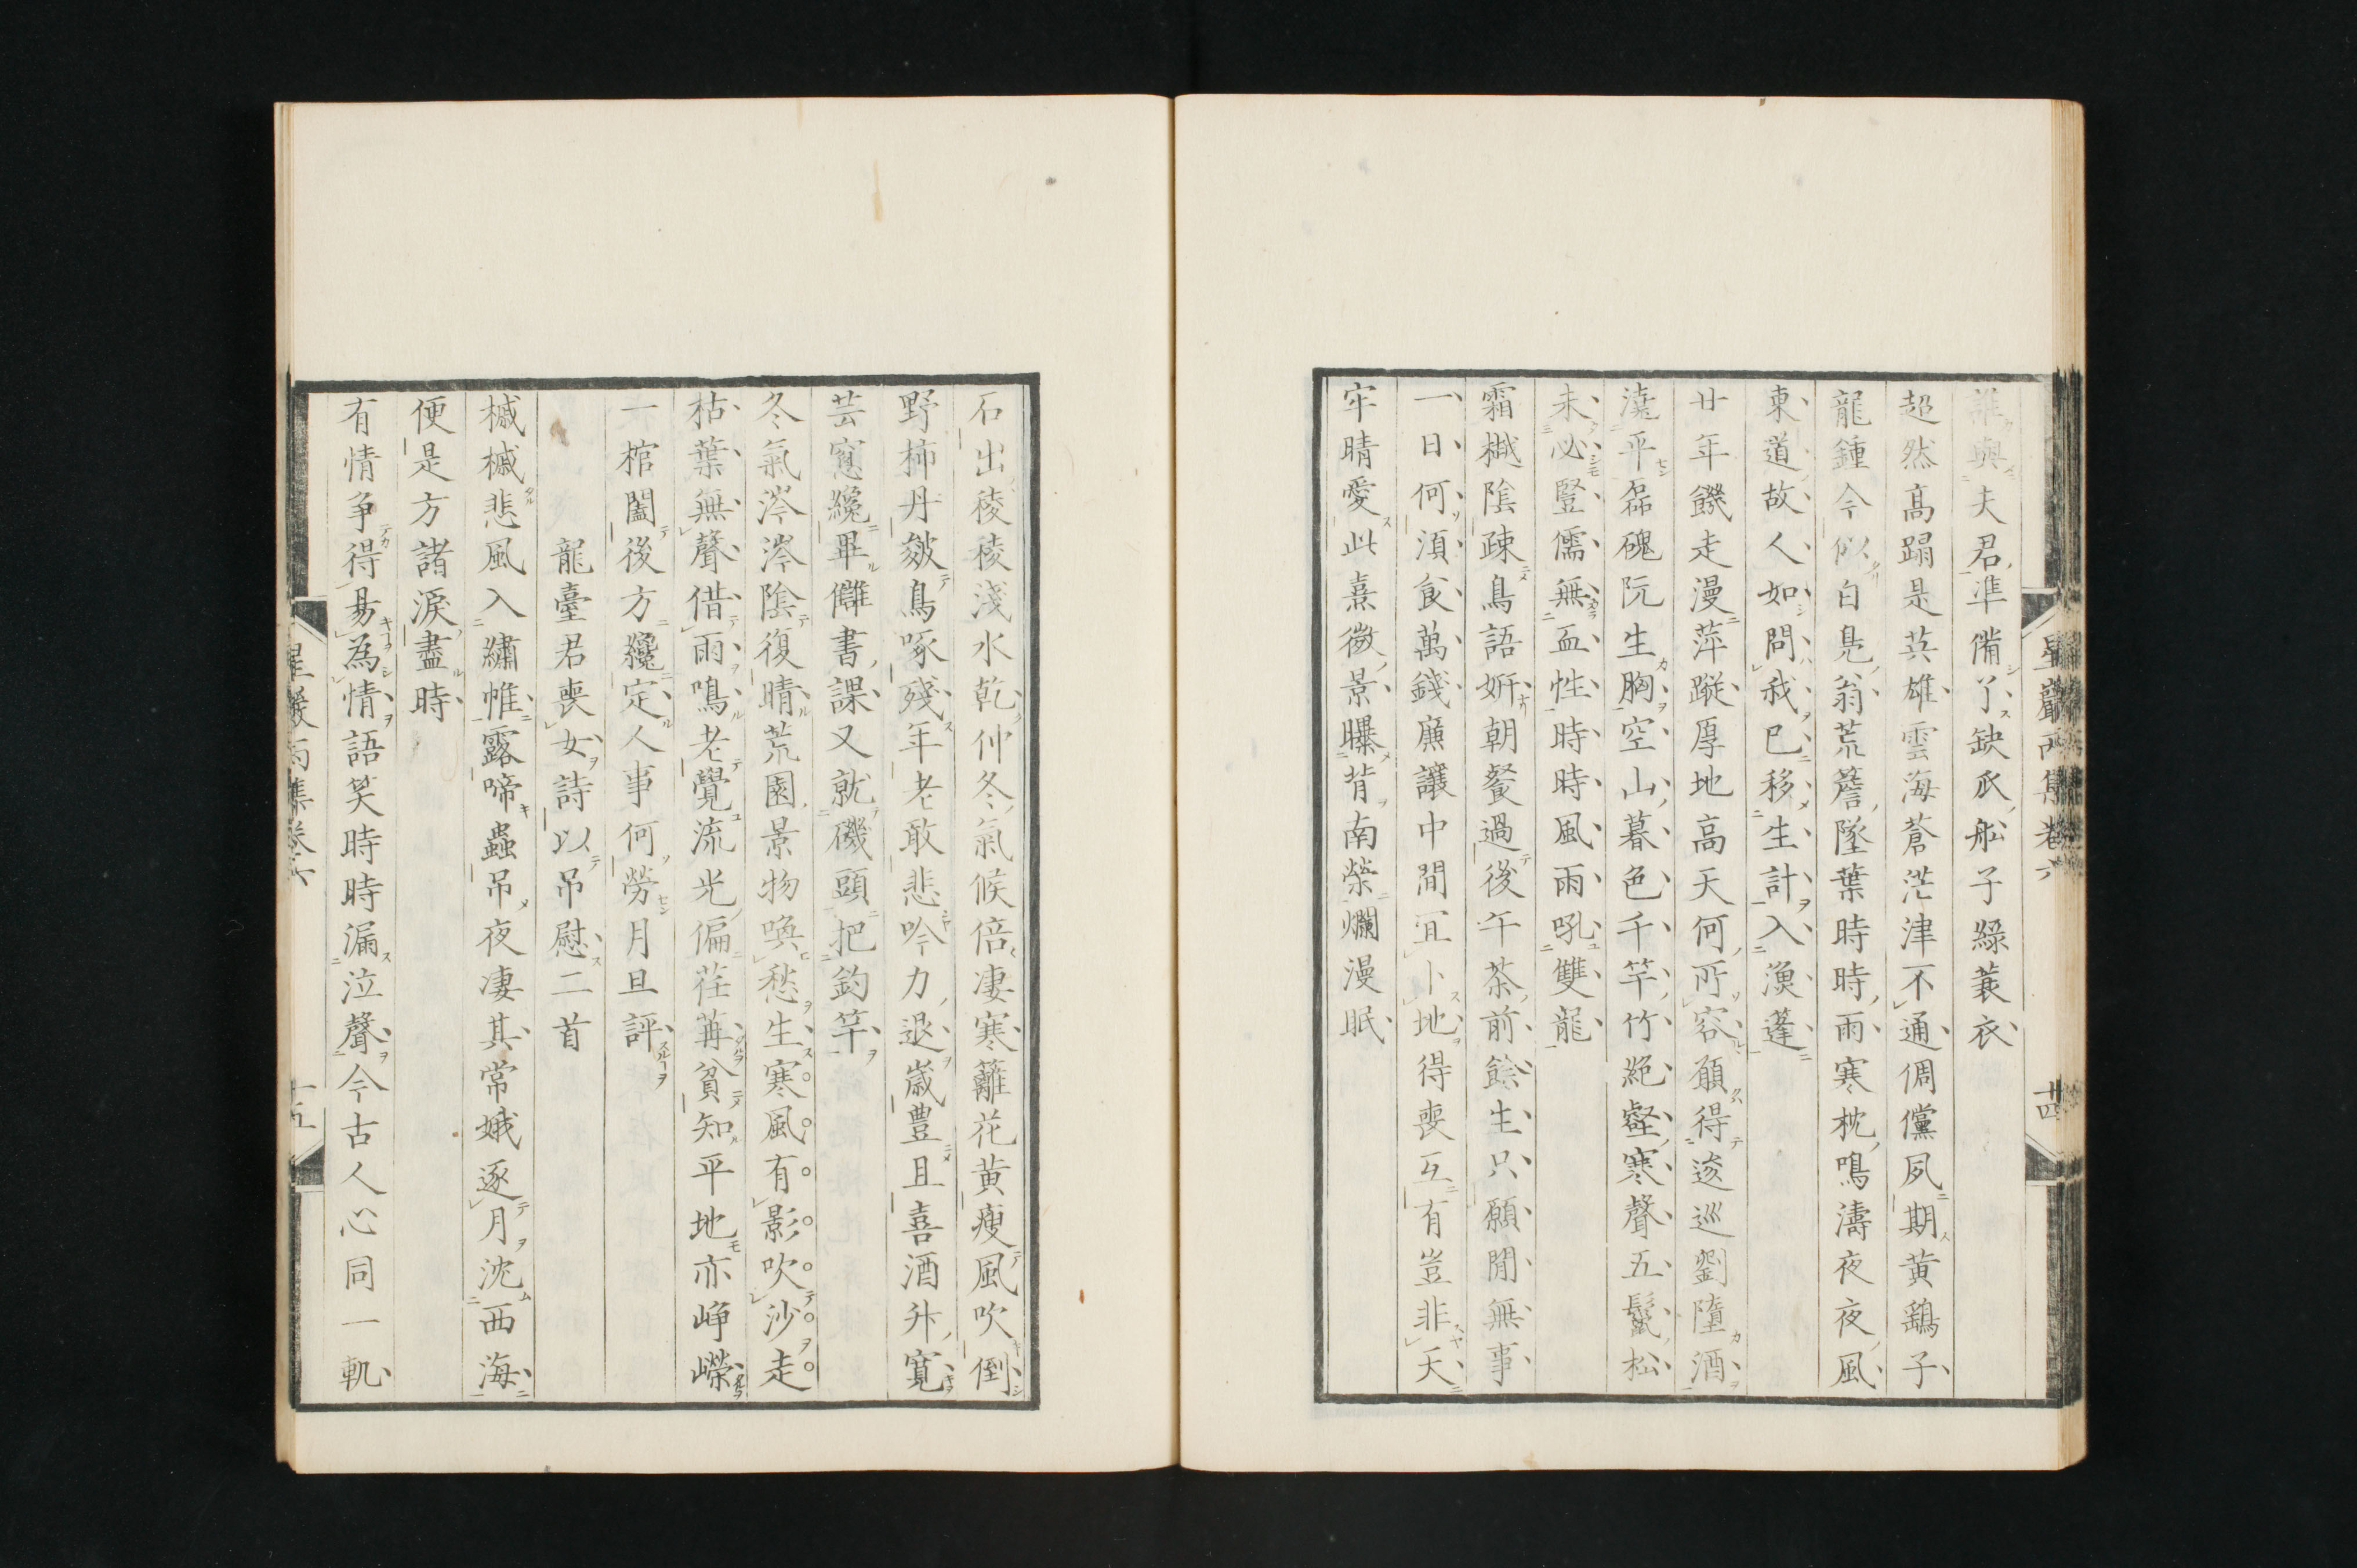 星巖丙集卷六 十四
誰與夫君準備丫缺瓜舩子綠蓑衣
超然高蹋是英雄雲海蒼茫津不通倜儻夙期黃鷂子
龍鍾今似白鳧翁荒簷墜葉時時雨寒枕鳴濤夜夜風
東道故人如問我已移生計入漁蓬
廿年饑走漫萍蹤厚地高天何所容願得逡巡劉墮酒
澆平磊磈阮生胸空山暮色千竿竹絕壑寒聲五鬣松
未必豎儒無血性時時風雨吼雙龍
霜樾陰疎鳥語妍朝餐過後午茶前餘生只願閒無事
一日何須食萬錢廉讓中間宜卜地得喪互有豈非天
牢晴愛此熹微景曝背南榮爛漫眠
石出稜稜淺水乾仲冬氣候倍凄寒籬花黃瘦風吹倒
野柿丹皴鳥啄殘年老敢悲吟力退歲豊且喜酒升寬
芸窻纔畢讎書課又就磯頭把釣竿
冬氣涔涔陰復晴荒園景物喚愁生寒風有影吹沙走
枯葉無聲借雨鳴老覺流光偏荏苒貧知平地亦崢嶸
一棺闔後方纔定人事何勞月旦評
龍臺君喪女詩以吊慰二首
槭槭悲風入繡帷露啼蟲吊夜凄其常娥逐月沈西海
便是方諸淚盡時
有情争得易為情語笑時時漏泣聲今古人心同一軌
星巖丙集卷六 十五